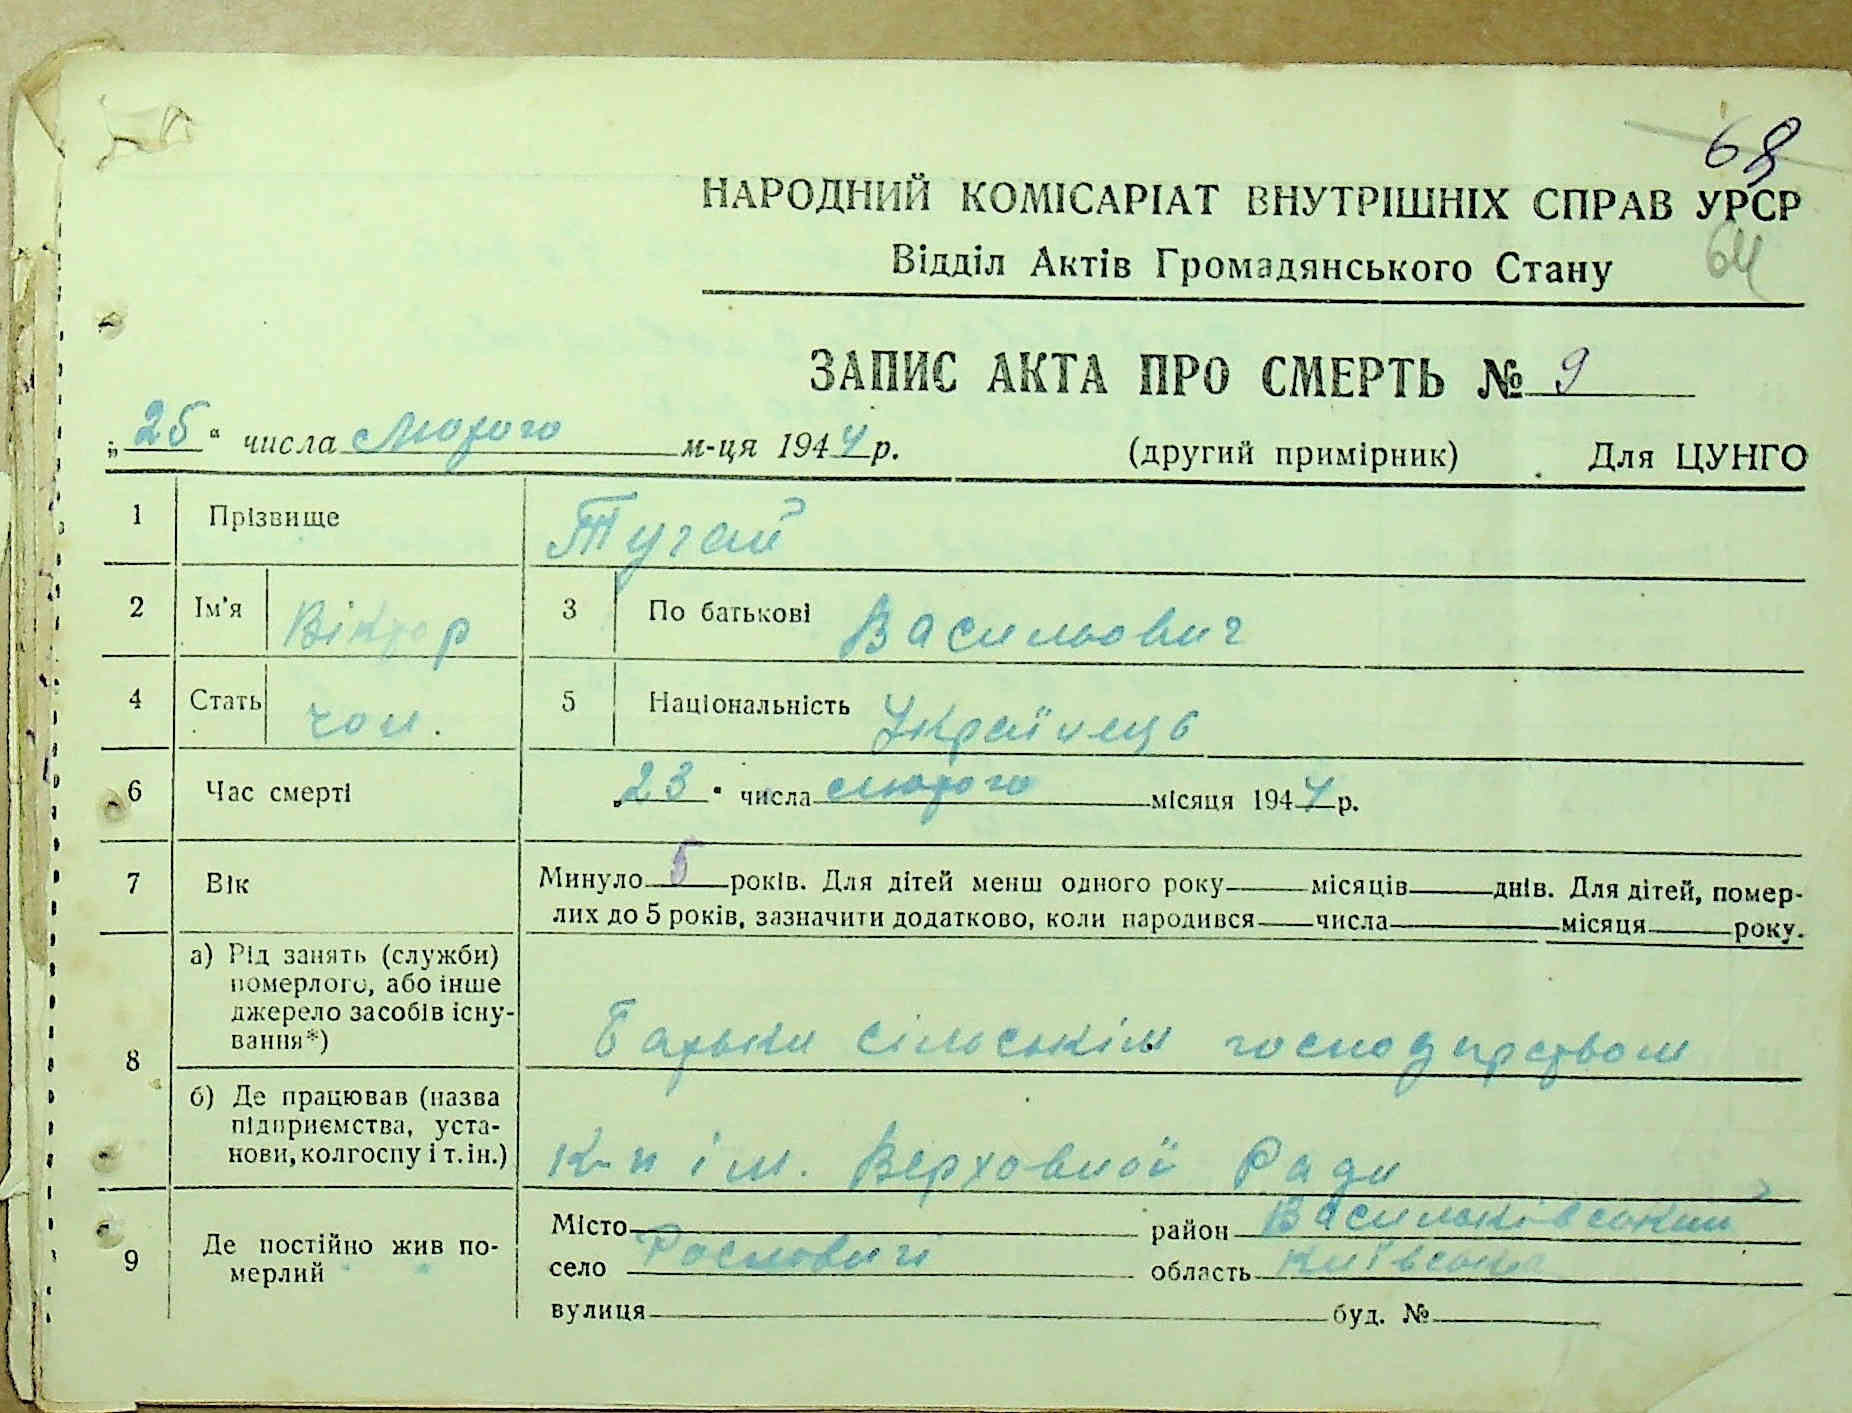 68
НАРОДНИЙ КОМІСАРІАТ ВНУТРІШНІХ СПРАВ УРСР
64
Відділ Актів Громадянського Стану
ЗАПИС АКТА ПРО СМЕРТЬ № 9
„25“ числа Лютого м-ця 1944 р. (другий примірник) Для ЦУНГО
1 Прізвище Тугай
2 Ім'я Віктор 3 По батькові Васильович
4 Стать чол. 5 Національність Українець
6 Час смерті „23“ числа лютого місяця 1944 р.
7 Вік Минуло 5 років. Для дітей менш одного року місяців днів. Для дітей, помер-
лих до 5 років, зазначити додатково, коли народився числа місяця року.
8 а) Рід занять (служби)
померлого, або інше
джерело засобів існу-
вання*) Батьки сільськім господарством
б) Де працював (назва
підприємства, уста-
нови, колгоспу і т. ін.) К-п ім. Верховної Ради
9 Де постійно жив по-
мерлий
Місто район Васильківський
село Рословичі область Київська
вулиця буд. №